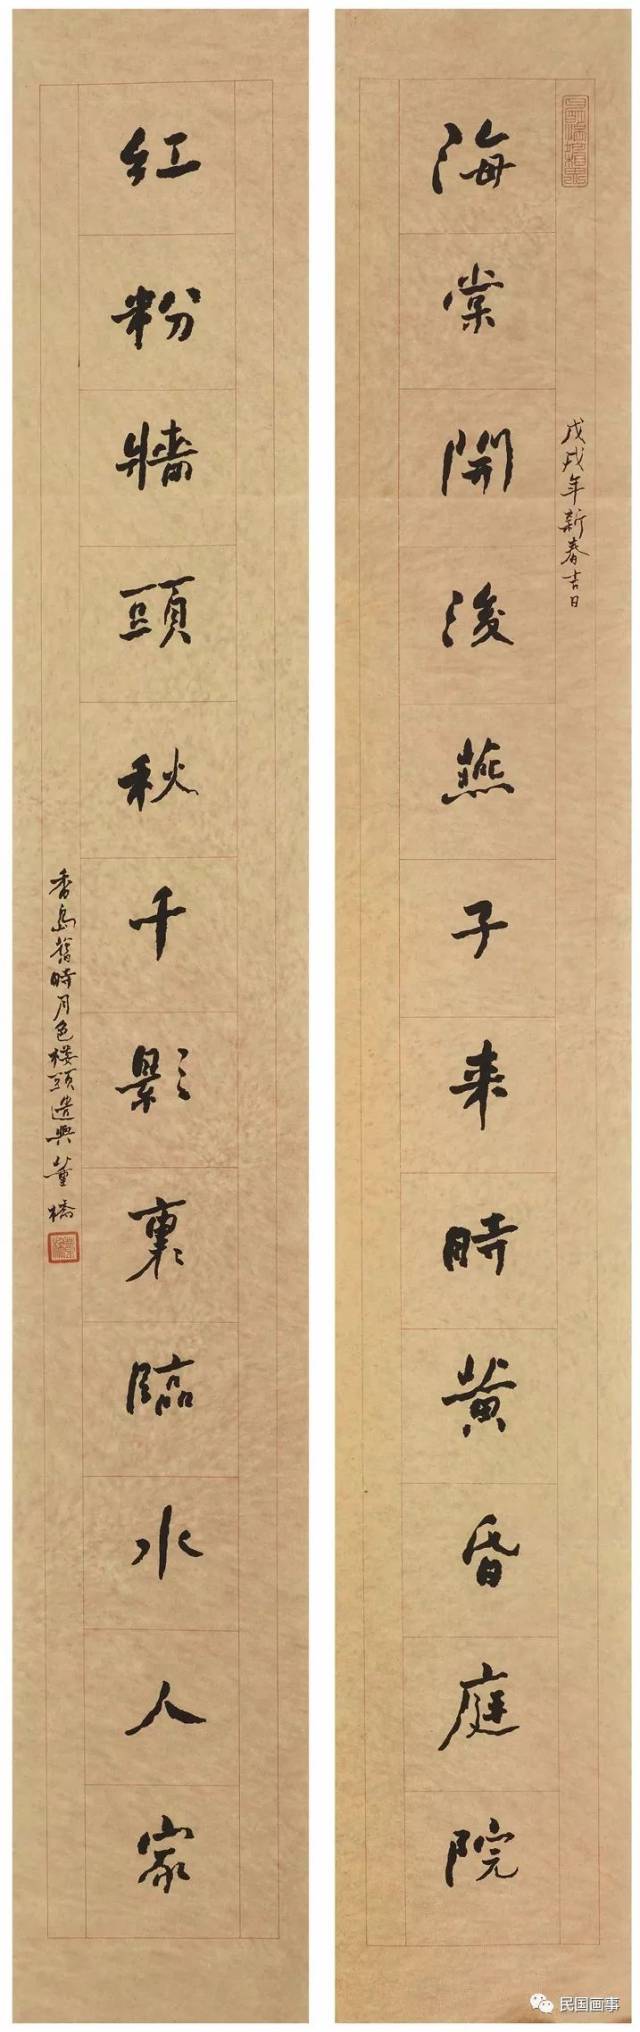 戊戌年新春吉日
海棠開後燕子来時黄昏庭院
红粉牆頭秋千影裏臨水人家
香島舊時月色楼頭遣興董橋
民国画事